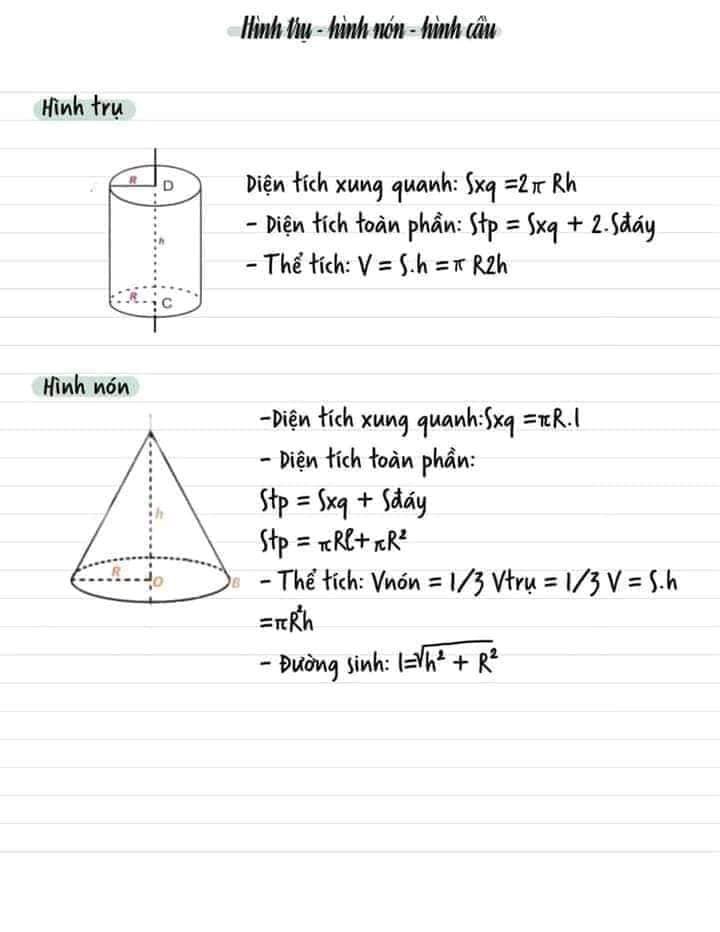 Hình trụ - hình nón - hình cầu
Hình trụ
R
D
h
R
C
Diện tích xung quanh: Sxq =2π Rh
- Diện tích toàn phần: Stp = Sxq + 2.Sđáy
- Thể tích: V = S.h = π R2h
Hình nón
h
R
O
B
-Diện tích xung quanh:Sxq =πR.l
- Diện tích toàn phần:
Stp = Sxq + Sđáy
Stp = πRl+πR²
- Thể tích: Vnón = 1/3 Vtrụ = 1/3 V = S.h
=πR²h
- Đường sinh: l=√h² + R²